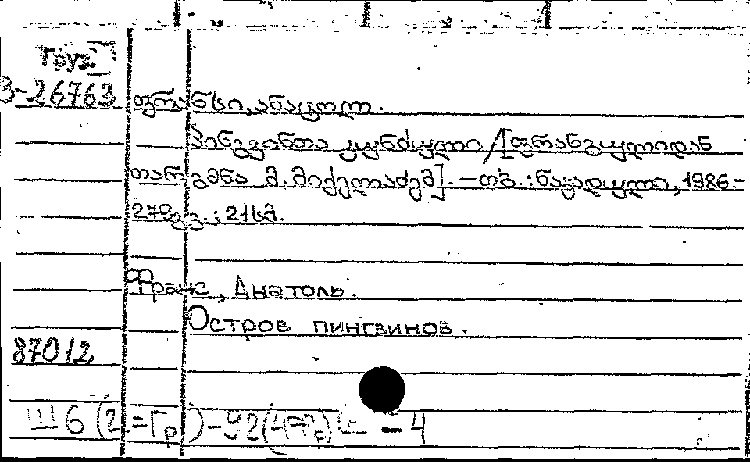 Груз.
3-26763
ფრანსი, ანატოლ.
პინგვინთა კუნძული/[ფრანგულიდან
თარგმნა მ. მიქელაძემ]. — თბ. : ნაკადული, 1986 –
279გვ. ; 21სმ.
Франс, Анатоль.
Остров пингвинов.
87012
Ш6(2=Гр)-92(4Фр) – 4